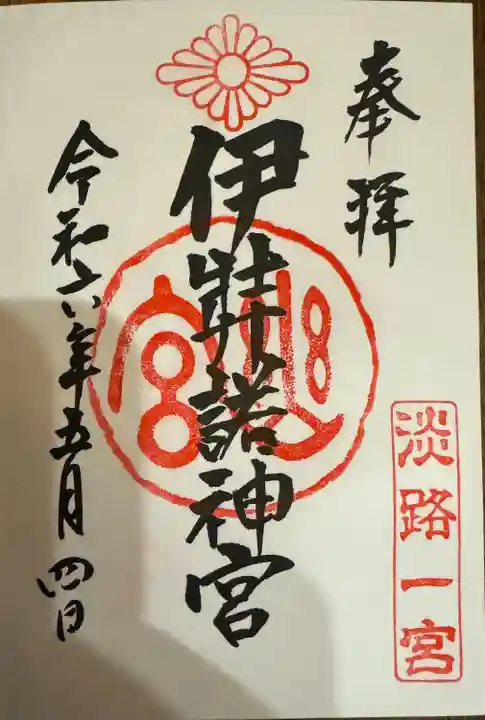 奉拝
淡路一宮
伊弉諾神宮
令和六年五月四日